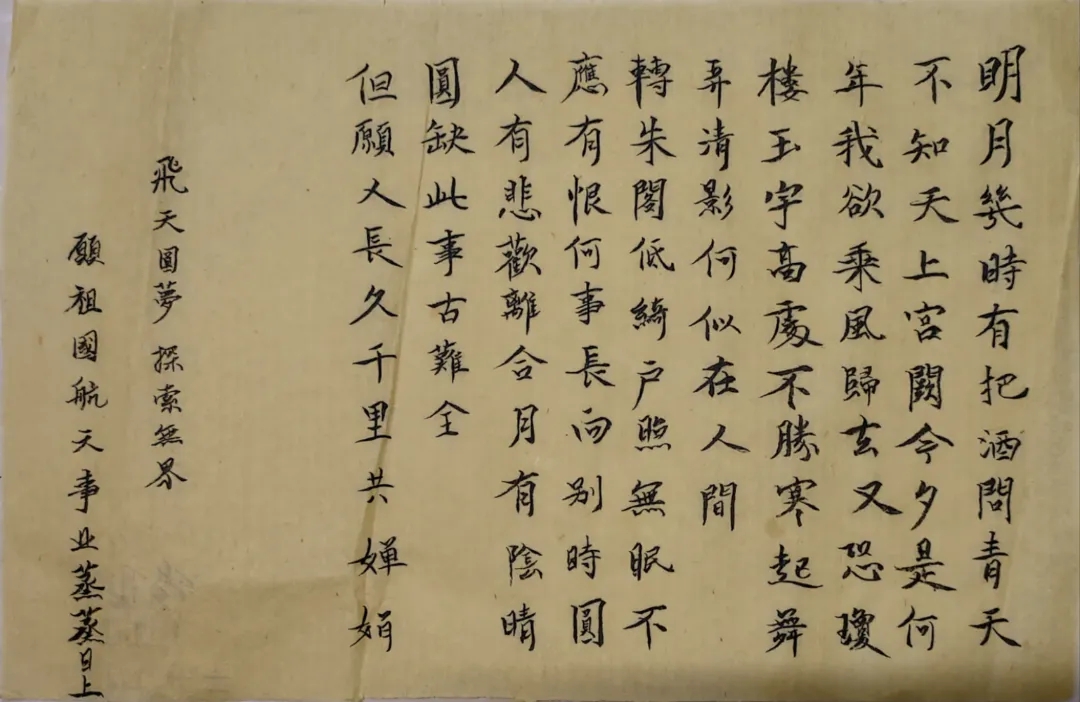 明月幾時有把酒問青天
不知天上宮闕今夕是何
年我欲乘風歸去又恐瓊
樓玉宇高處不勝寒起舞
弄清影何似在人間
轉朱閣低綺户照無眠不
應有恨何事長向别時圓
人有悲歡離合月有陰晴
圓缺此事古難全
但願人長久千里共嬋娟
飛天圓夢 探索無界
願祖國航天事业蒸蒸日上